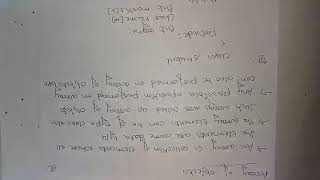 Array of objects
→ An array is collection of elements where all
the elements are same data type
→ The array elements can be of type class also
Such arrays are called as array of objects
→ Any possible operation performed on array
can also be performed on array of objects also
class student
{
Private:
int regno;
Char name[10]
int marks[5]